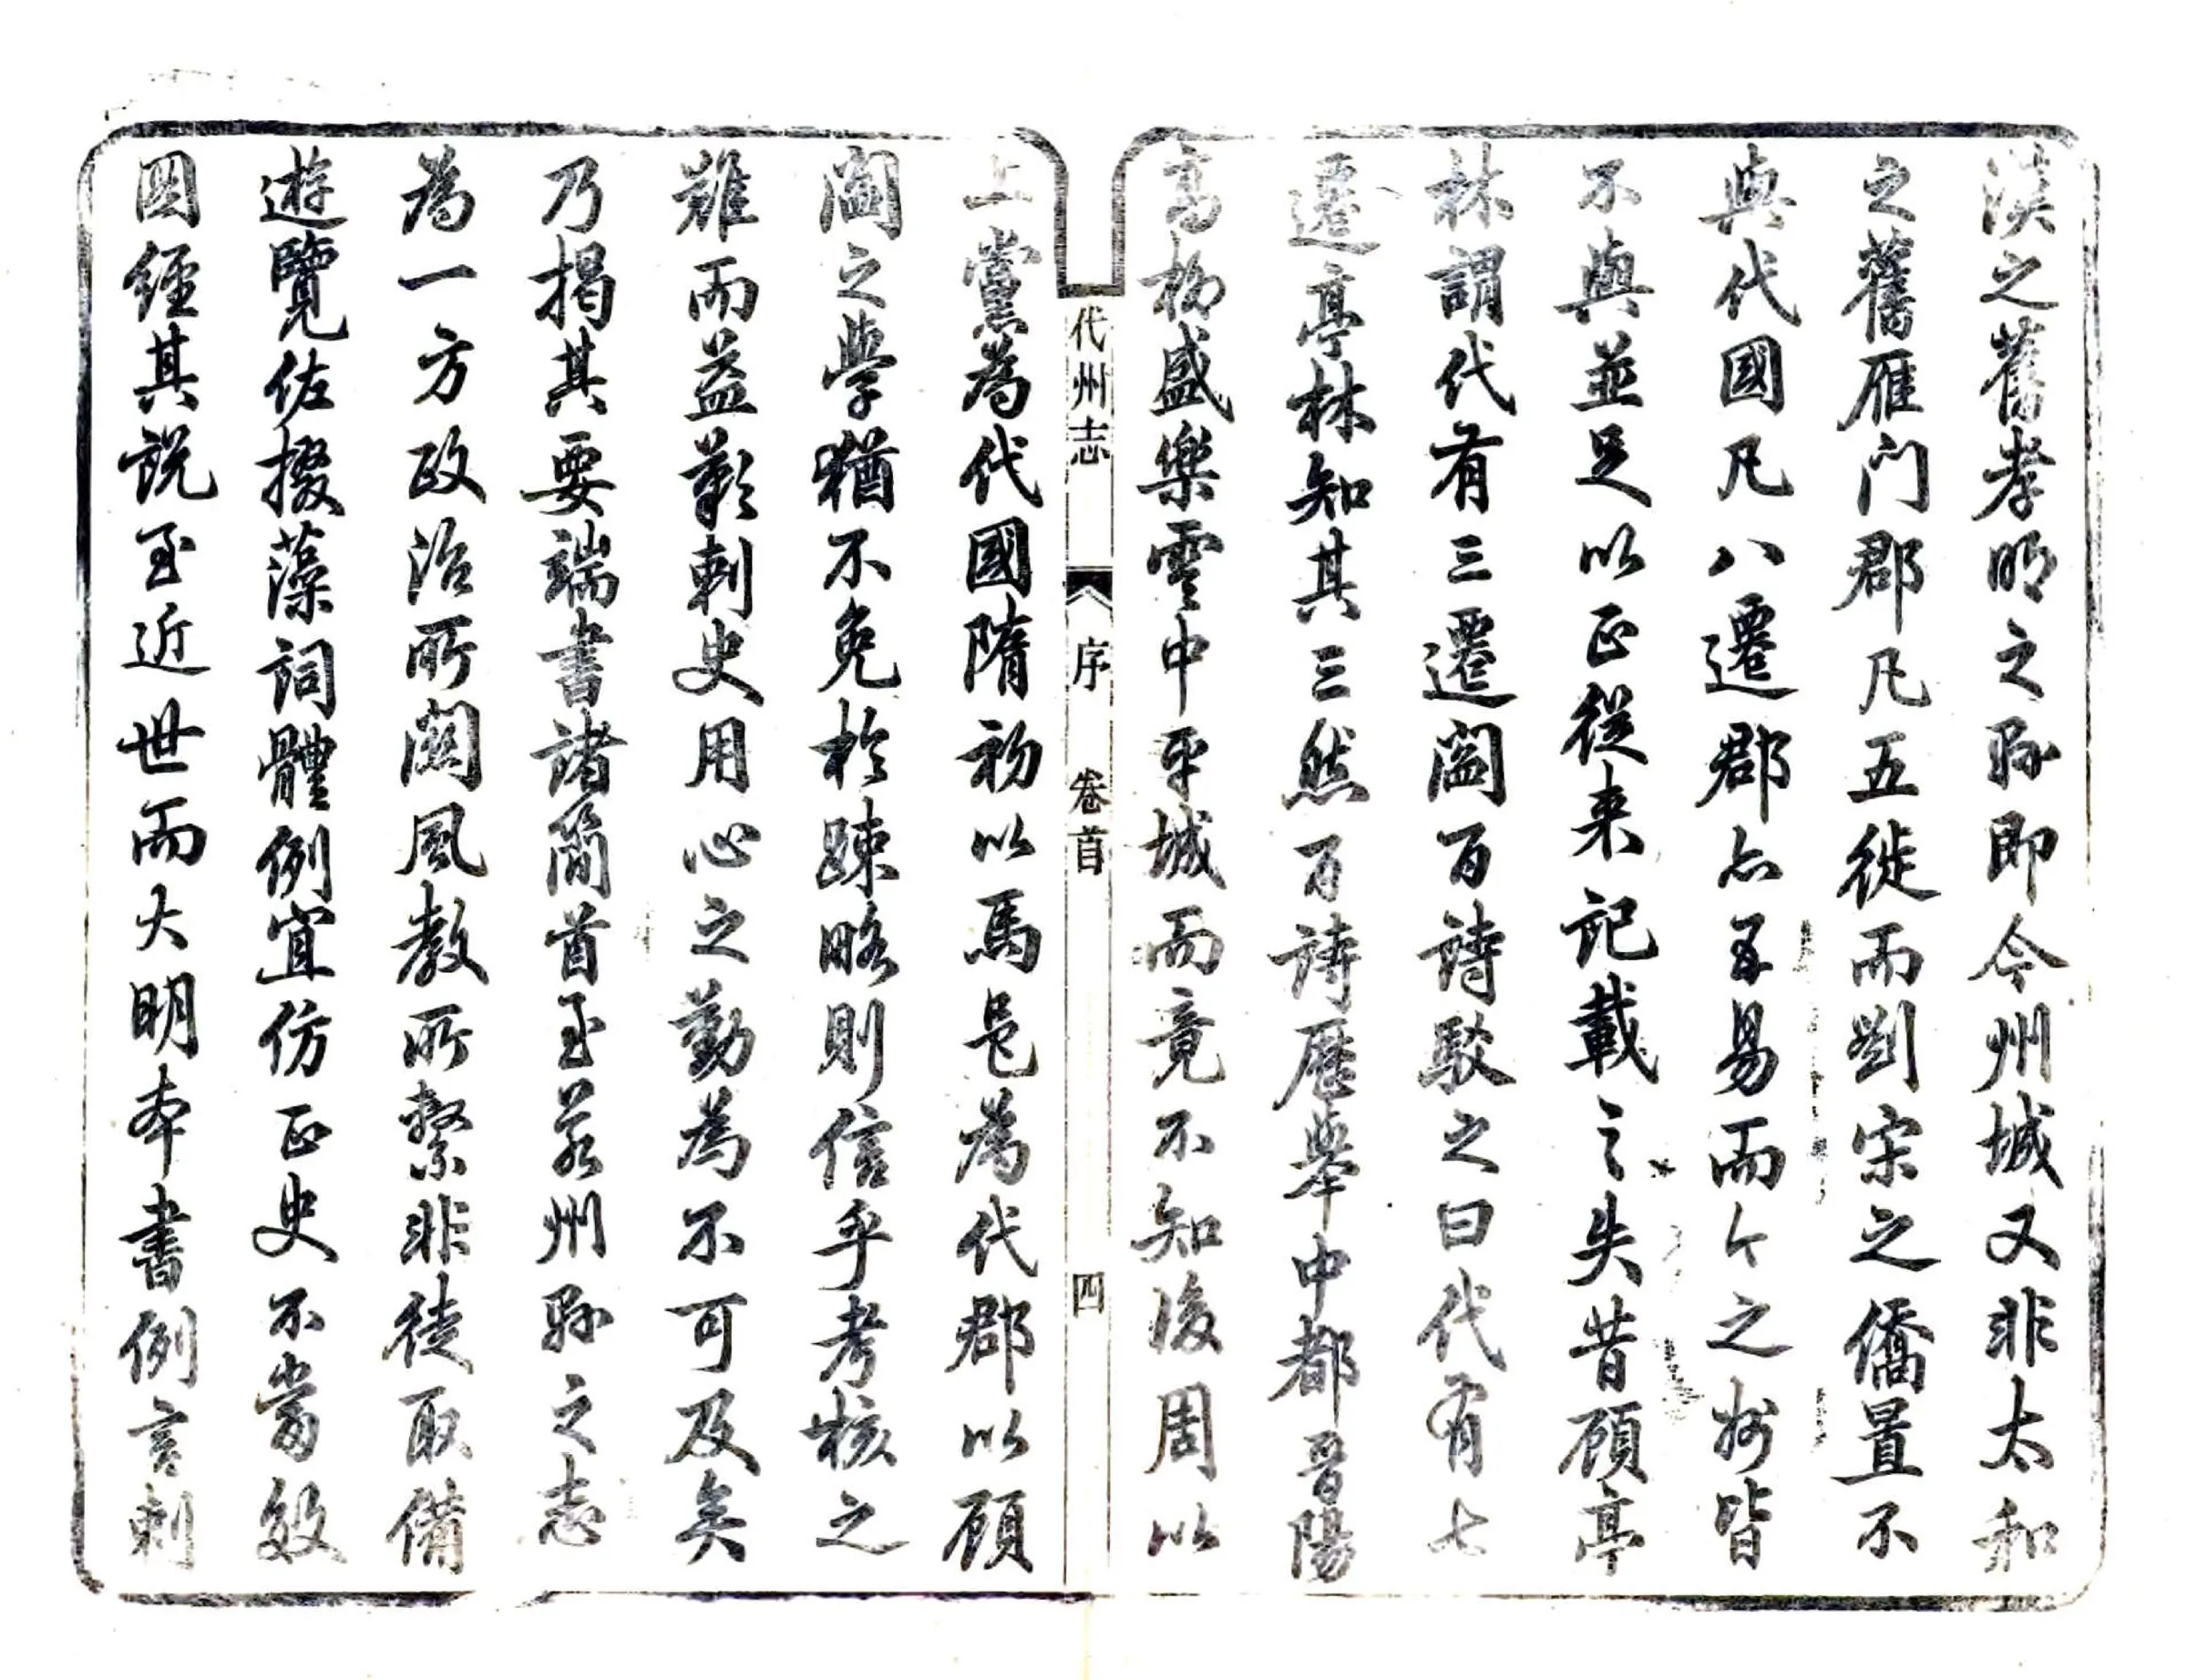 漢之舊孝明之縣即今州城又非太和
之舊雁門郡凡五徙而劉宋之僑置不
與代國凡八遷郡亦五易而今之州皆
不與並足以正從来記載之失昔顧亭
林謂代有三遷閻百詩駁之曰代有七
遷亭林知其三然百詩歷舉中都晉陽
高柳盛樂雲中平城而竟不知後周以
代州志 序 卷首 四
上黨為代國隋初以馬邑為代郡以顧
閻之學猶不免於踈略則信乎考核之
難而益歎刺史用心之勤為不可及矣
乃揭其要端書諸簡首至若州縣之志
為一方政治所關風教所繫非徒取備
遊覽佐掇藻詞體例宜仿正史不當效
圖經其說至近世而大明本書例言刺